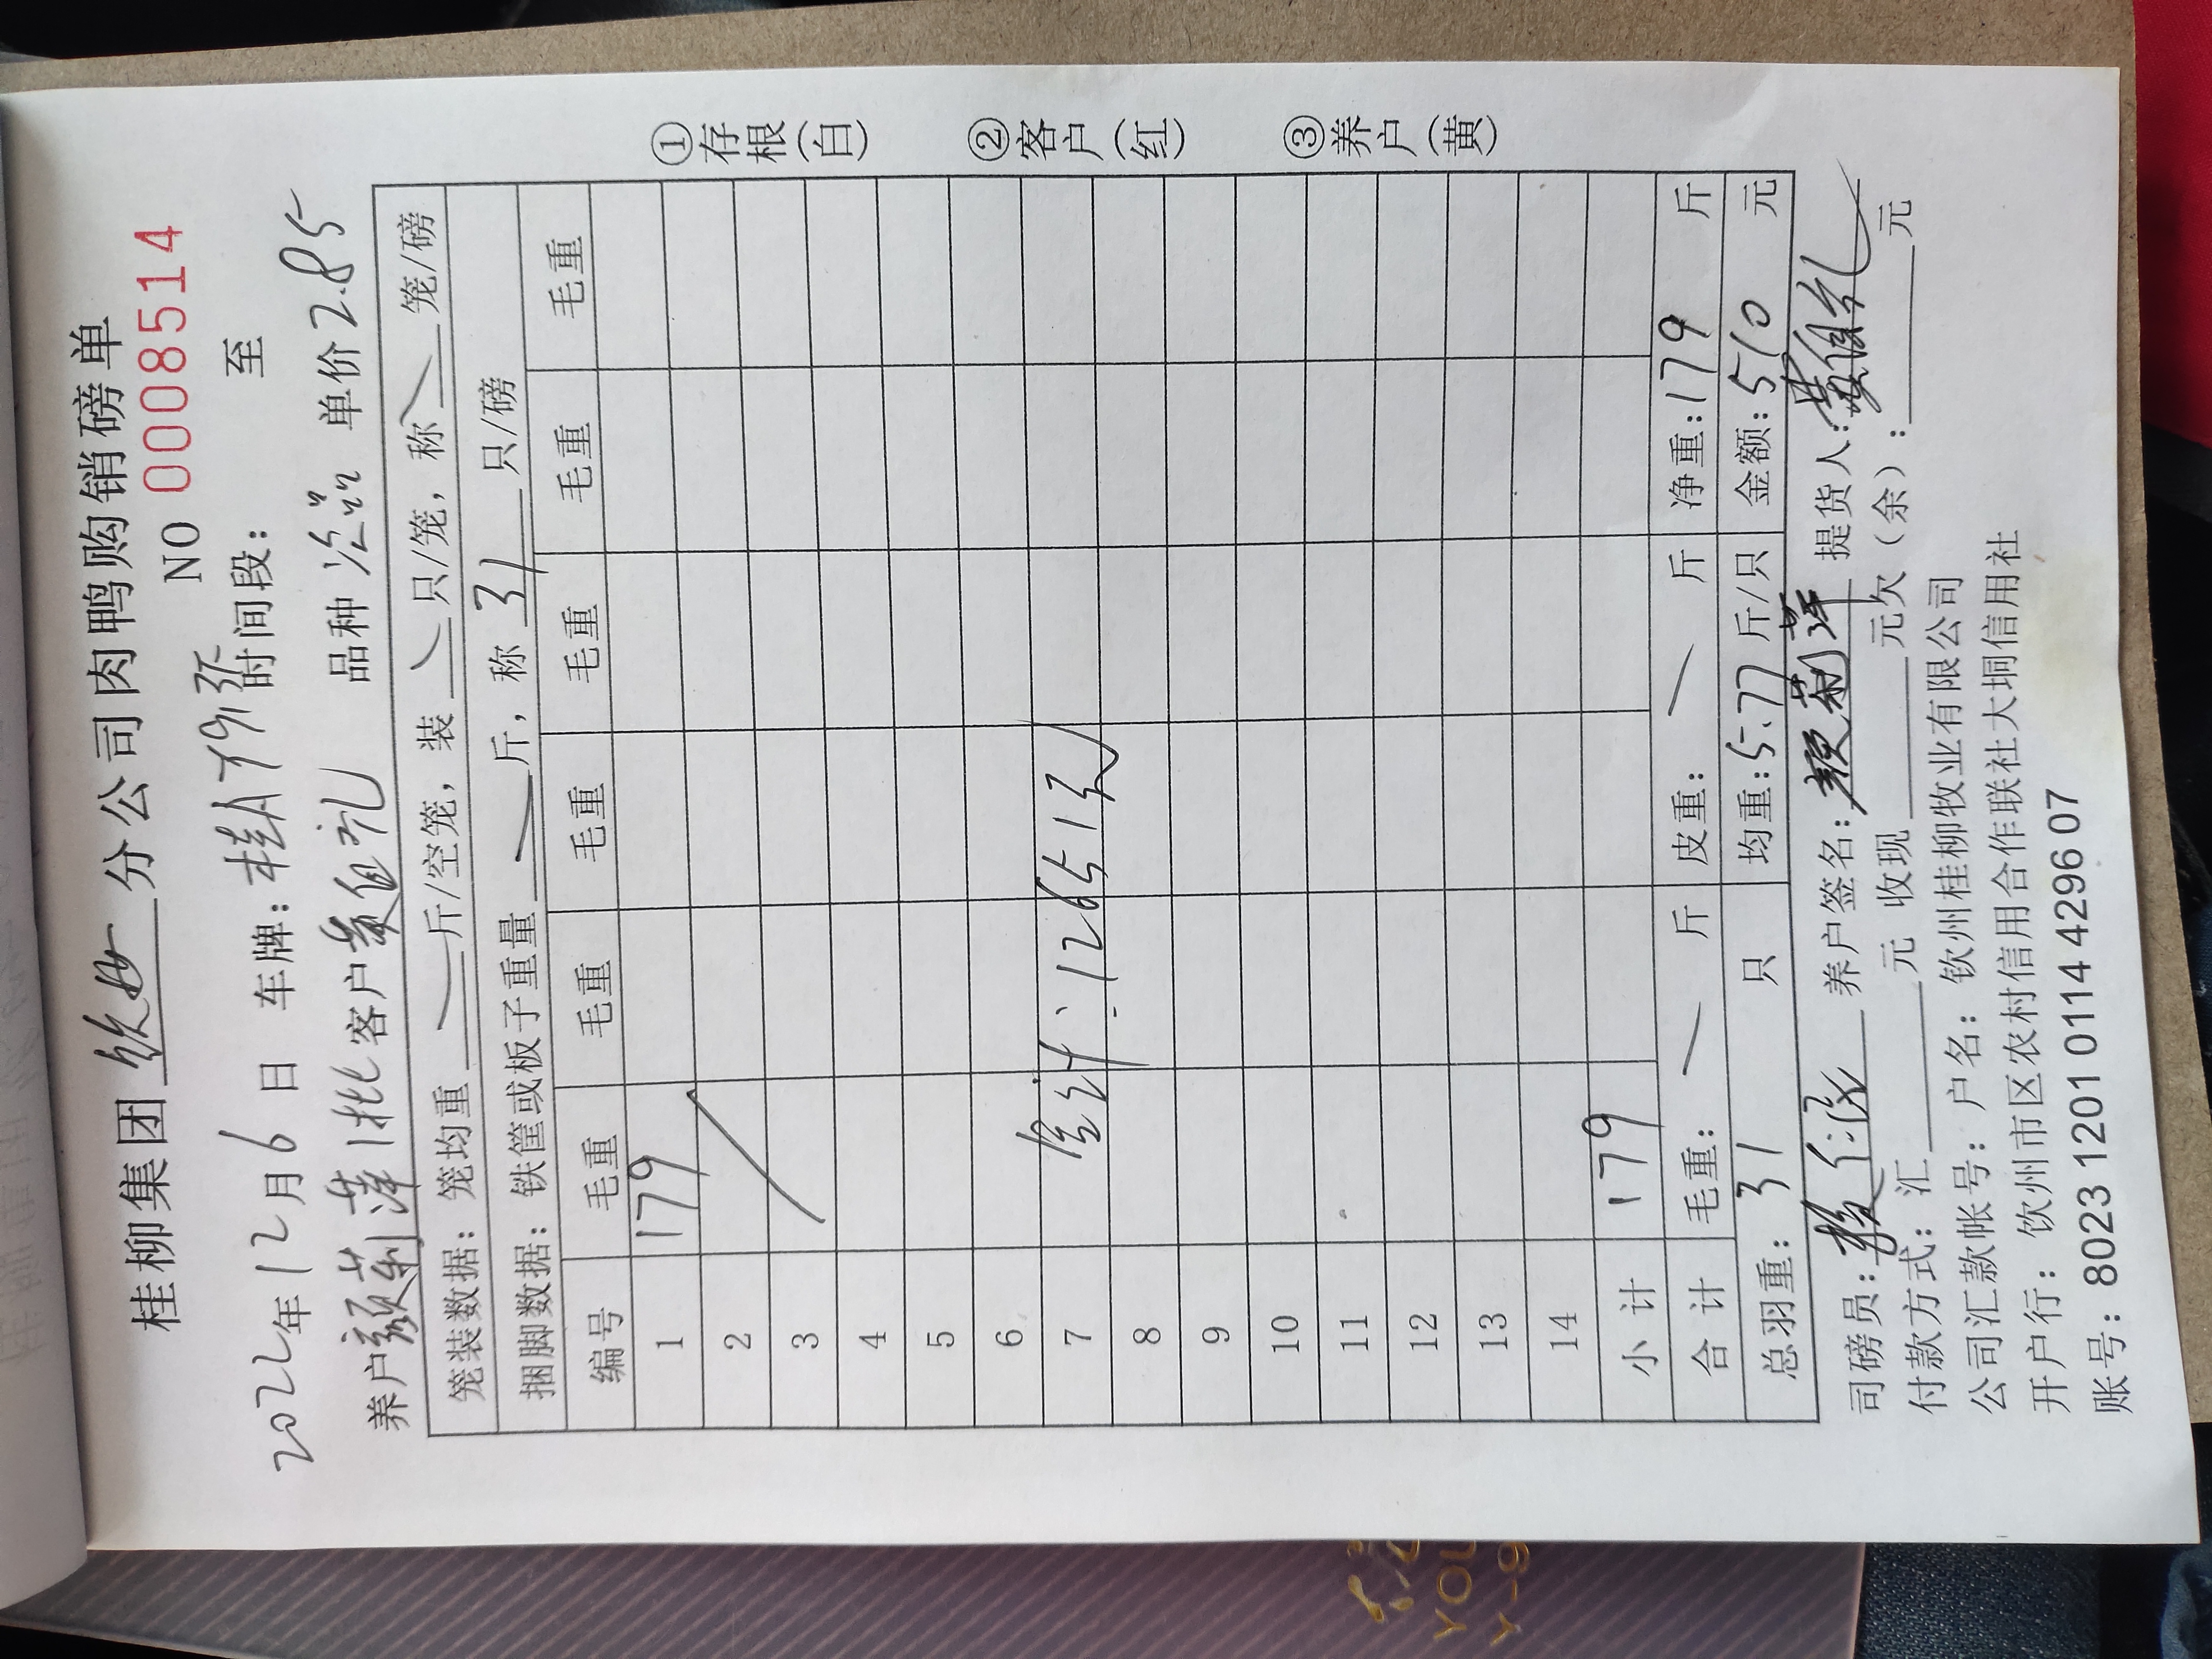 桂柳集团 钦州 分公司肉鸭购销磅单
NO 0008514
2022年12月6日 车牌：桂A 时间段： 至
养户 颜菊萍 1批 客户 黄自礼 品种 次品 单价 2.85
笼装数据：笼均重 斤/空笼，装 只/笼，称 笼/磅
捆脚数据：铁筐或板子重量 斤，称 31 只/磅
编号 毛重 毛重 毛重 毛重 毛重 毛重
1 179
2
3
4
5
6
7 合计：12651只
8
9
10
11
12
13
14
小计 179
合计 毛重： 斤 皮重： 斤 净重：179 斤
总羽重：31 只 均重：5.77 斤/只 金额：510 元
司磅员： 养户签名：颜菊萍 提货人：黄自礼
付款方式：汇 元 收现 元欠（余）： 元
公司汇款帐号：户名：钦州桂柳牧业有限公司
开户行：饮州市区农村信用合作联社大垌信用社
账号：8023 1201 0114 4296 07
①存根（白）
②客户（红）
③养户（黄）
YOU
Y-9